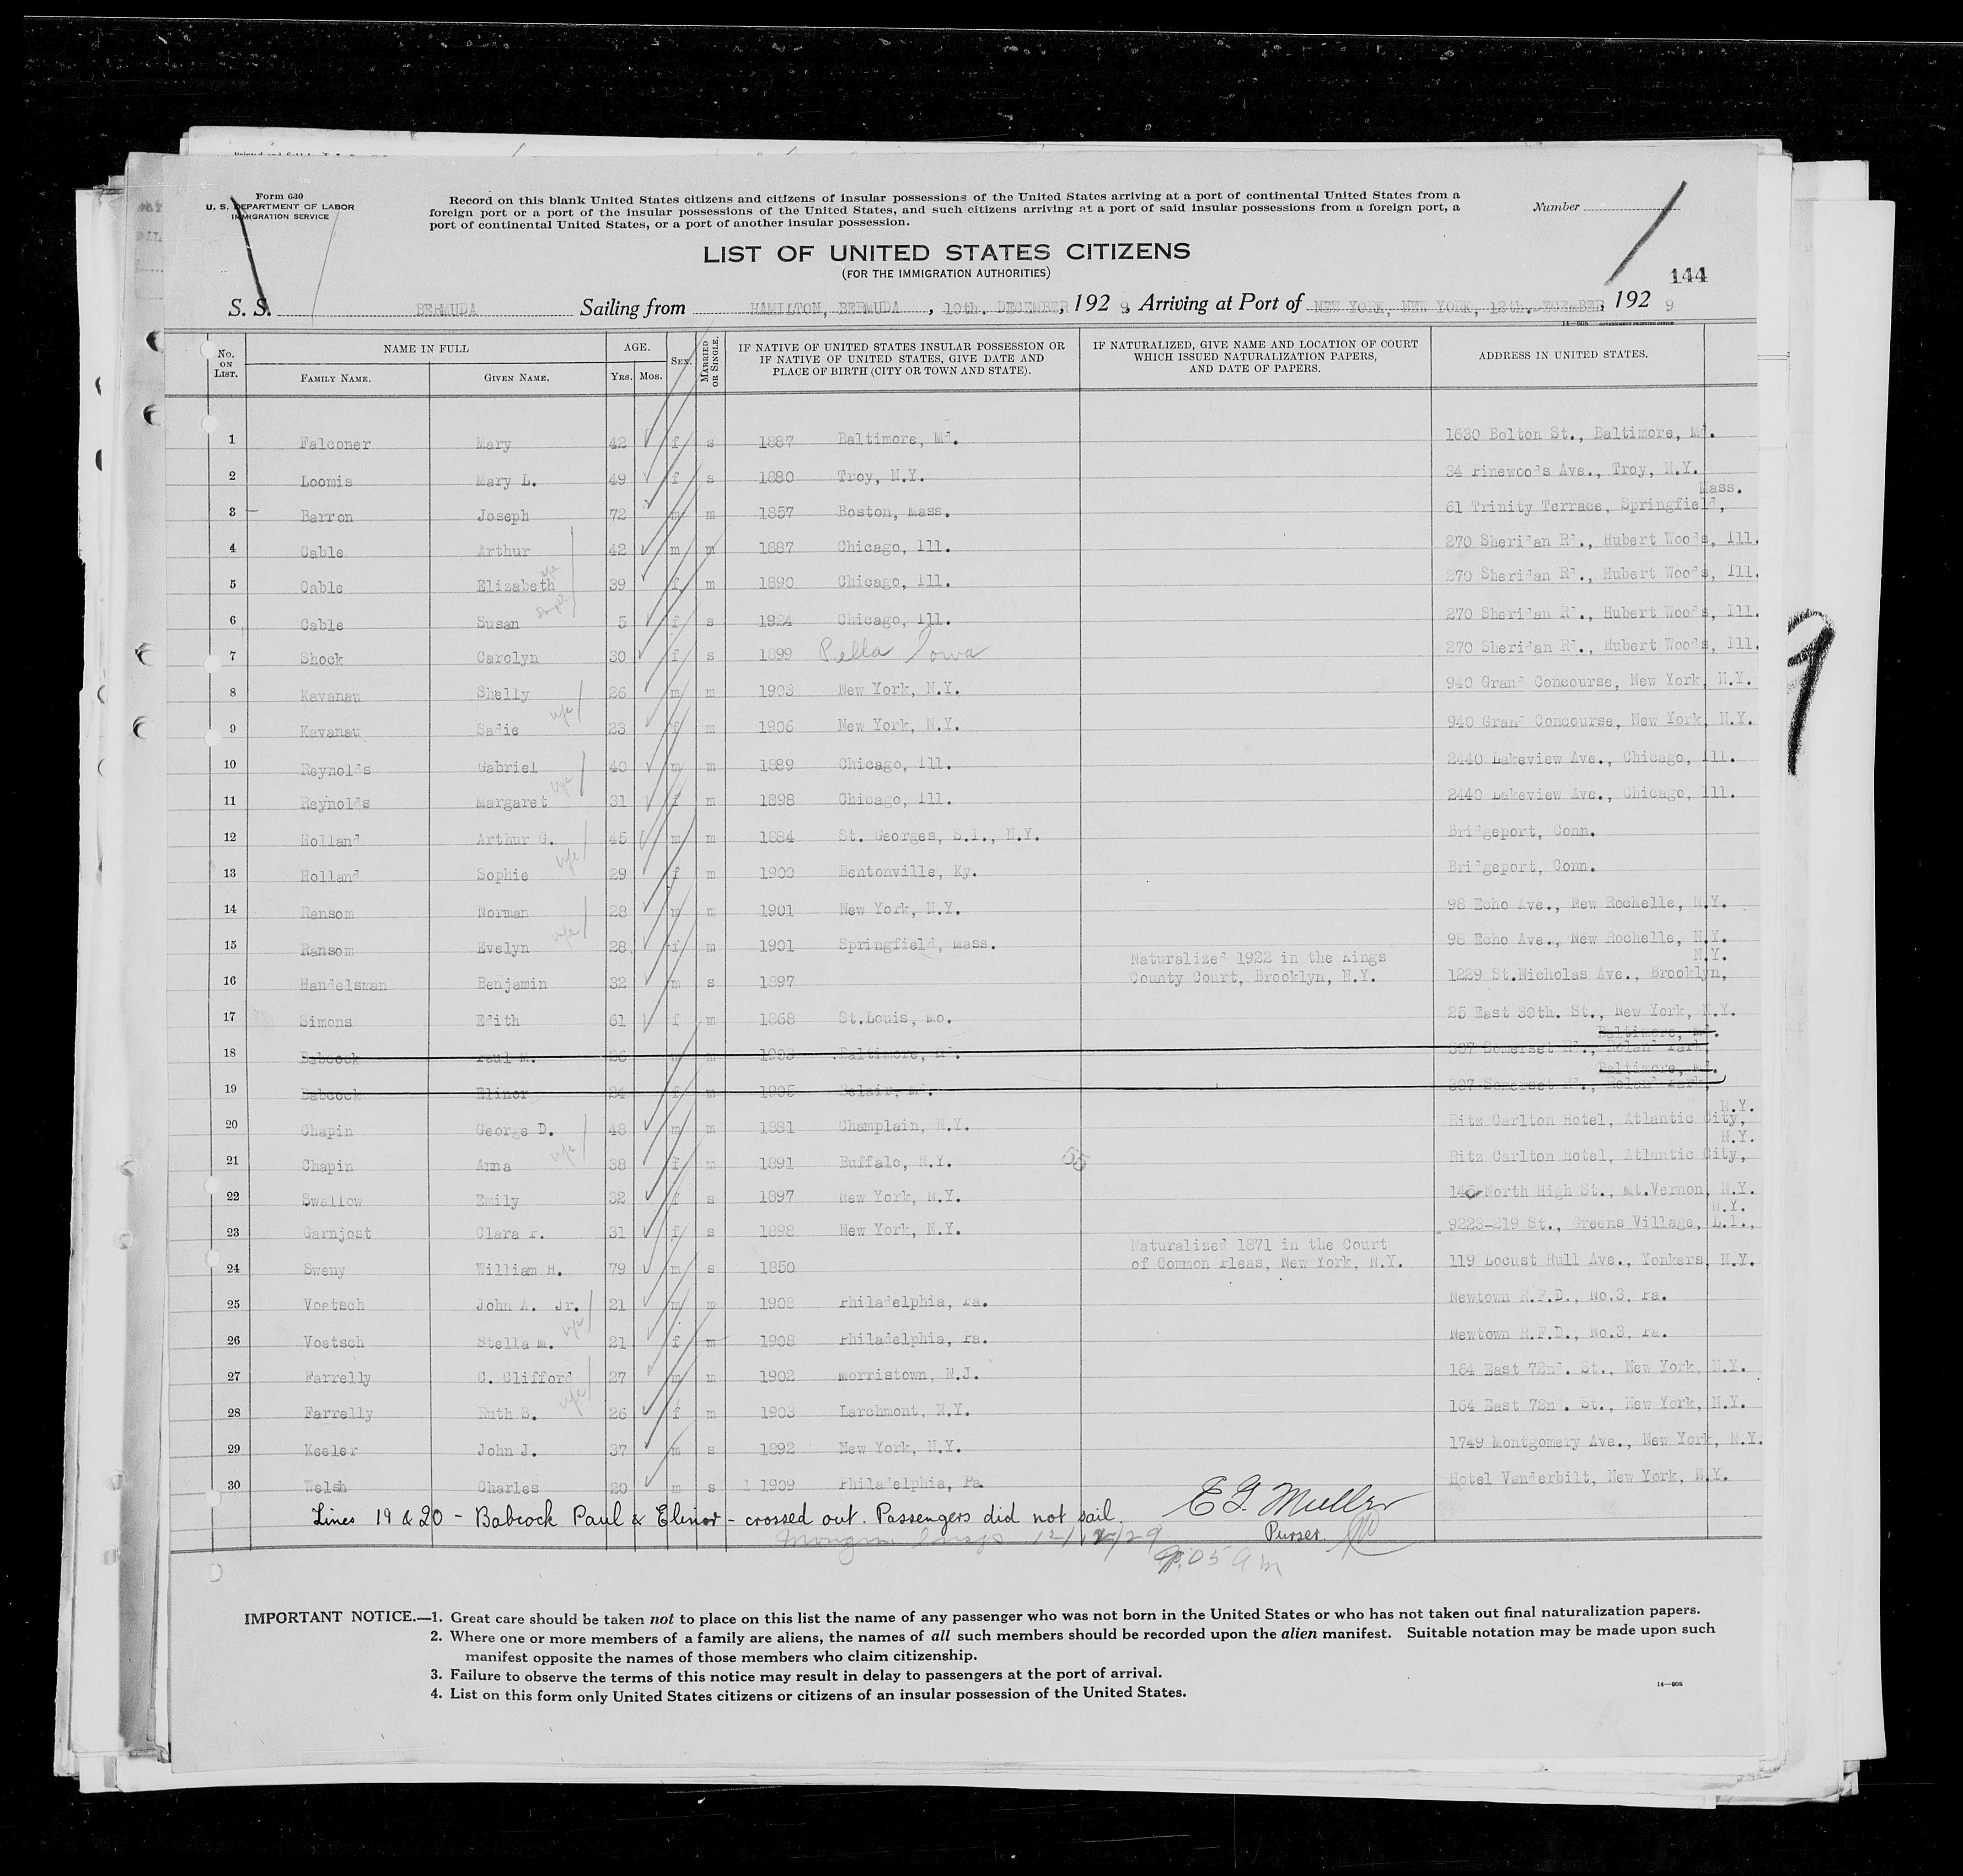 Form 630
U. S. DEPARTMENT OF LABOR
IMMIGRATION SERVICE
Record on this blank United States citizens and citizens of insular possessions of the United States arriving at a port of continental United States from a
foreign port or a port of the insular possessions of the United States, and such citizens arriving at a port of said insular possessions from a foreign port, a
port of continental United States, or a port of another insular possession.
Number
LIST OF UNITED STATES CITIZENS
(FOR THE IMMIGRATION AUTHORITIES)
144
S. S. BERMUDA Sailing from HAMILTON, BERMUDA, 10th. DECEMBER, 1929, Arriving at Port of NEW YORK, NEW YORK, 12th. DECEMBER, 1929
14—608 GOVERNMENT PRINTING OFFICE
No. ON LIST. NAME IN FULL AGE. SEX. MARRIED OR SINGLE. IF NATIVE OF UNITED STATES INSULAR POSSESSION OR IF NATIVE OF UNITED STATES, GIVE DATE AND PLACE OF BIRTH (CITY OR TOWN AND STATE). IF NATURALIZED, GIVE NAME AND LOCATION OF COURT WHICH ISSUED NATURALIZATION PAPERS, AND DATE OF PAPERS. ADDRESS IN UNITED STATES.
FAMILY NAME. GIVEN NAME. YRS. MOS.
1 Falconer Mary 42 f s 1887 Baltimore, Md. 1630 Bolton St., Baltimore, Md.
2 Loomis Mary L. 49 f s 1880 Troy, N.Y. 34 Pinewoods Ave., Troy, N.Y.
3 Barron Joseph 72 m m 1857 Boston, Mass. 61 Trinity Terrace, Springfield, Mass.
4 Cable Arthur 42 m m 1887 Chicago, Ill. 270 Sheridan Rd., Hubert Woods, Ill.
5 Cable Elizabeth wife 39 f m 1890 Chicago, Ill. 270 Sheridan Rd., Hubert Woods, Ill.
6 Cable Susan 5 f s 1924 Chicago, Ill. 270 Sheridan Rd., Hubert Woods, Ill.
7 Shock Carolyn 30 f s 1899 Pella Iowa 270 Sheridan Rd., Hubert Woods, Ill.
8 Kavanau Shelly 26 m m 1903 New York, N.Y. 940 Grand Concourse, New York, N.Y.
9 Kavanau Sadie wife 23 f m 1906 New York, N.Y. 940 Grand Concourse, New York, N.Y.
10 Reynolds Gabriel 40 m m 1889 Chicago, Ill. 2440 Lakeview Ave., Chicago, Ill.
11 Reynolds Margaret wife 31 f m 1898 Chicago, Ill. 2440 Lakeview Ave., Chicago, Ill.
12 Holland Arthur G. 45 m m 1884 St. Georges, S.I., N.Y. Bridgeport, Conn.
13 Holland Sophie wife 29 f m 1900 Bentonville, Ky. Bridgeport, Conn.
14 Ransom Norman 28 m m 1901 New York, N.Y. 98 Echo Ave., New Rochelle, N.Y.
15 Ransom Evelyn wife 28 f m 1901 Springfield, Mass. 98 Echo Ave., New Rochelle, N.Y.
16 Handelsman Benjamin 32 m s 1897 Naturalized 1922 in the Kings County Court, Brooklyn, N.Y. 1229 St.Nicholas Ave., Brooklyn, N.Y.
17 Simons Edith 61 f m 1868 St.Louis, Mo. 25 East 30th. St., New York, N.Y.
18 Babcock Paul M. 26 m m 1903 Baltimore, Md. 307 Somerset Rd., Roland Park, Baltimore, Md.
19 Babcock Elinor 24 f m 1905 Belair, Md. 307 Somerset Rd., Roland Park, Baltimore, Md.
20 Chapin George D. 48 m m 1881 Champlain, N.Y. Ritz Carlton Hotel, Atlantic City, N.Y.
21 Chapin Anna wife 38 f m 1891 Buffalo, N.Y. Ritz Carlton Hotel, Atlantic City, N.Y.
22 Swallow Emily 32 f s 1897 New York, N.Y. 145 North High St., Mt.Vernon, N.Y.
23 Garnjost Clara F. 31 f s 1898 New York, N.Y. 9223-219 St., Greens Village, L.I., N.Y.
24 Sweny William H. 79 m s 1850 Naturalized 1871 in the Court of Common Pleas, New York, N.Y. 119 Locust Hull Ave., Yonkers, N.Y.
25 Voetsch John A. Jr. 21 m m 1908 Philadelphia, Pa. Newtown R.F.D., No.3, Pa.
26 Voetsch Stella M. wife 21 f m 1908 Philadelphia, Pa. Newtown R.F.D., No.3, Pa.
27 Farrelly C. Clifford 27 m m 1902 Morristown, N.J. 164 East 72nd. St., New York, N.Y.
28 Farrelly Ruth S. wife 26 f m 1903 Larchmont, N.Y. 164 East 72nd. St., New York, N.Y.
29 Keeler John J. 37 m s 1892 New York, N.Y. 1749 Montgomery Ave., New York, N.Y.
30 Welsh Charles 20 m s 1909 Philadelphia, Pa. Hotel Vanderbilt, New York, N.Y.
Lines 19 & 20 - Babcock Paul & Elinor - crossed out. Passengers did not sail. E G. Muller
Purser.
12/12/29
9.05 am
IMPORTANT NOTICE.—1. Great care should be taken not to place on this list the name of any passenger who was not born in the United States or who has not taken out final naturalization papers.
2. Where one or more members of a family are aliens, the names of all such members should be recorded upon the alien manifest. Suitable notation may be made upon such
manifest opposite the names of those members who claim citizenship.
3. Failure to observe the terms of this notice may result in delay to passengers at the port of arrival.
4. List on this form only United States citizens or citizens of an insular possession of the United States.
14—608